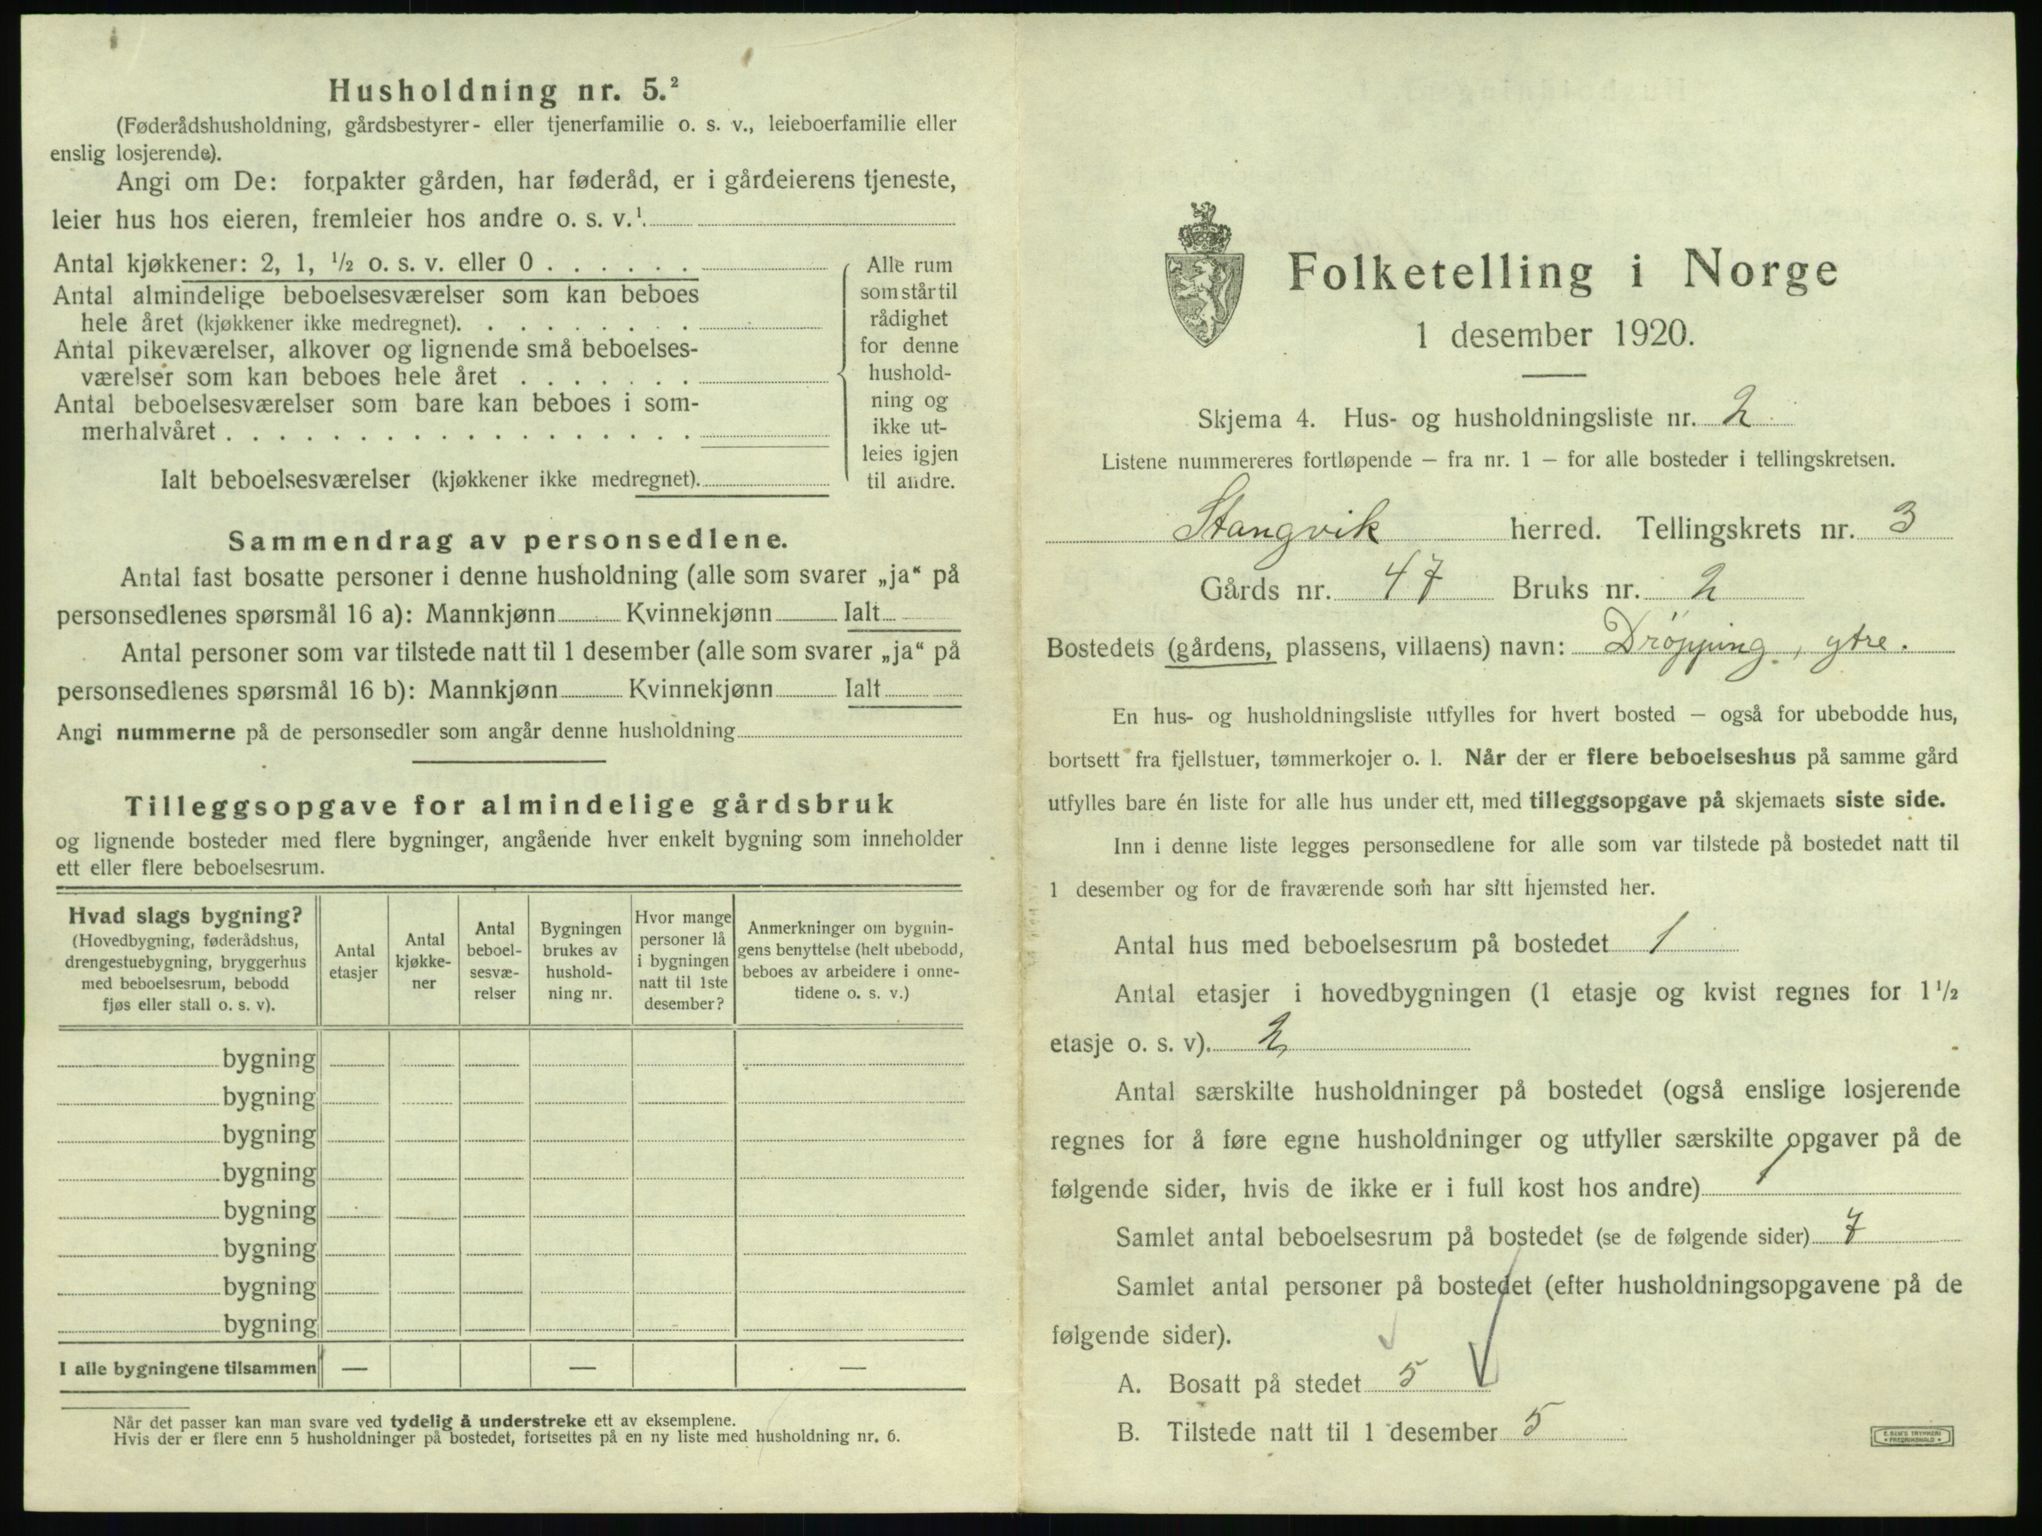 Husholdning nr. 5.²
(Føderådshusholdning, gårdsbestyrer- eller tjenerfamilie o. s. v., leieboerfamilie eller
enslig losjerende).
Angi om De: forpakter gården, har føderåd, er i gårdeierens tjeneste,
leier hus hos eieren, fremleier hos andre o. s. v.¹
Antal kjøkkener: 2, 1, ½ o. s. v. eller 0 . . . . . .
Antal almindelige beboelsesværelser som kan beboes
hele året (kjøkkener ikke medregnet). . . . . . . . .
Antal pikeværelser, alkover og lignende små beboelses-
værelser som kan beboes hele året . . . . . . .
Antal beboelsesværelser som bare kan beboes i som-
merhalvåret . . . . . . . . . . . . . . . . . .
Ialt beboelsesværelser (kjøkkener ikke medregnet).
Alle rum
som står til
rådighet
for denne
hushold-
ning og
ikke ut-
leies igjen
til andre.
Sammendrag av personsedlene.
Antal fast bosatte personer i denne husholdning (alle som svarer „ja“ på
personsedlenes spørsmål 16 a): Mannkjønn Kvinnekjønn Ialt
Antal personer som var tilstede natt til 1 desember (alle som svarer „ja“ på
personsedlenes spørsmål 16 b): Mannkjønn Kvinnekjønn Ialt
Angi nummerne på de personsedler som angår denne husholdning
Tilleggsopgave for almindelige gårdsbruk
og lignende bosteder med flere bygninger, angående hver enkelt bygning som inneholder
ett eller flere beboelsesrum.
Hvad slags bygning?
(Hovedbygning, føderådshus,
drengestuebygning, bryggerhus
med beboelsesrum, bebodd
fjøs eller stall o. s. v).
Antal
etasjer
Antal
kjøkke-
ner
Antal
beboel-
sesvæ-
relser
Bygningen
brukes av
hushold-
ning nr.
Hvor mange
personer lå
i bygningen
natt til 1ste
desember?
Anmerkninger om bygnin-
gens benyttelse (helt ubebodd,
beboes av arbeidere i onne-
tidene o. s. v.)
bygning
bygning
bygning
bygning
bygning
bygning
bygning
bygning
I alle bygningene tilsammen — — —
Når det passer kan man svare ved tydelig å understreke ett av eksemplene.
Hvis der er flere enn 5 husholdninger på bostedet, fortsettes på en ny liste med husholdning nr. 6.
Folketelling i Norge
1 desember 1920.
Skjema 4. Hus- og husholdningsliste nr. 2
Listene nummereres fortløpende – fra nr. 1 – for alle bosteder i tellingskretsen.
Stangvik herred. Tellingskrets nr. 3
Gårds nr. 47 Bruks nr. 2
Bostedets (gårdens, plassens, villaens) navn: Drøpping, ytre.
En hus- og husholdningsliste utfylles for hvert bosted – også for ubebodde hus,
bortsett fra fjellstuer, tømmerkojer o. l. Når der er flere beboelseshus på samme gård
utfylles bare én liste for alle hus under ett, med tilleggsopgave på skjemaets siste side.
Inn i denne liste legges personsedlene for alle som var tilstede på bostedet natt til
1 desember og for de fraværende som har sitt hjemsted her.
Antal hus med beboelsesrum på bostedet 1
Antal etasjer i hovedbygningen (1 etasje og kvist regnes for 1½
etasje o. s. v). 2
Antal særskilte husholdninger på bostedet (også enslige losjerende
regnes for å føre egne husholdninger og utfyller særskilte opgaver på de
følgende sider, hvis de ikke er i full kost hos andre) 1
Samlet antal beboelsesrum på bostedet (se de følgende sider) 7
Samlet antal personer på bostedet (efter husholdningsopgavene på de
følgende sider).
A. Bosatt på stedet 5
B. Tilstede natt til 1 desember 5
E. SEM'S TRYKKERI
FREDRIKSHALD